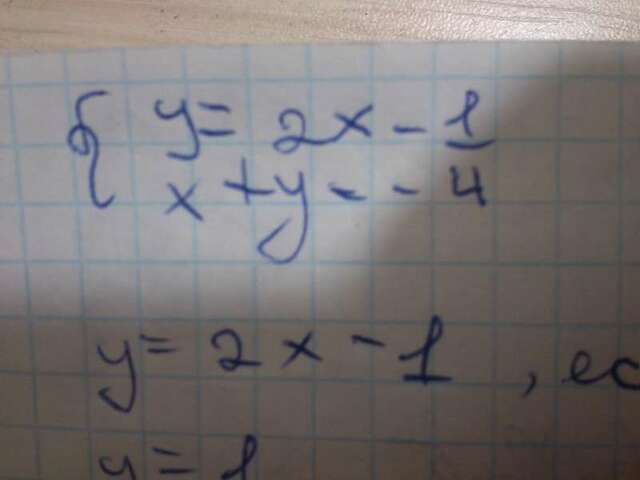 { y = 2x - 1
x + y = -4
y = 2x - 1, ес
y = 1